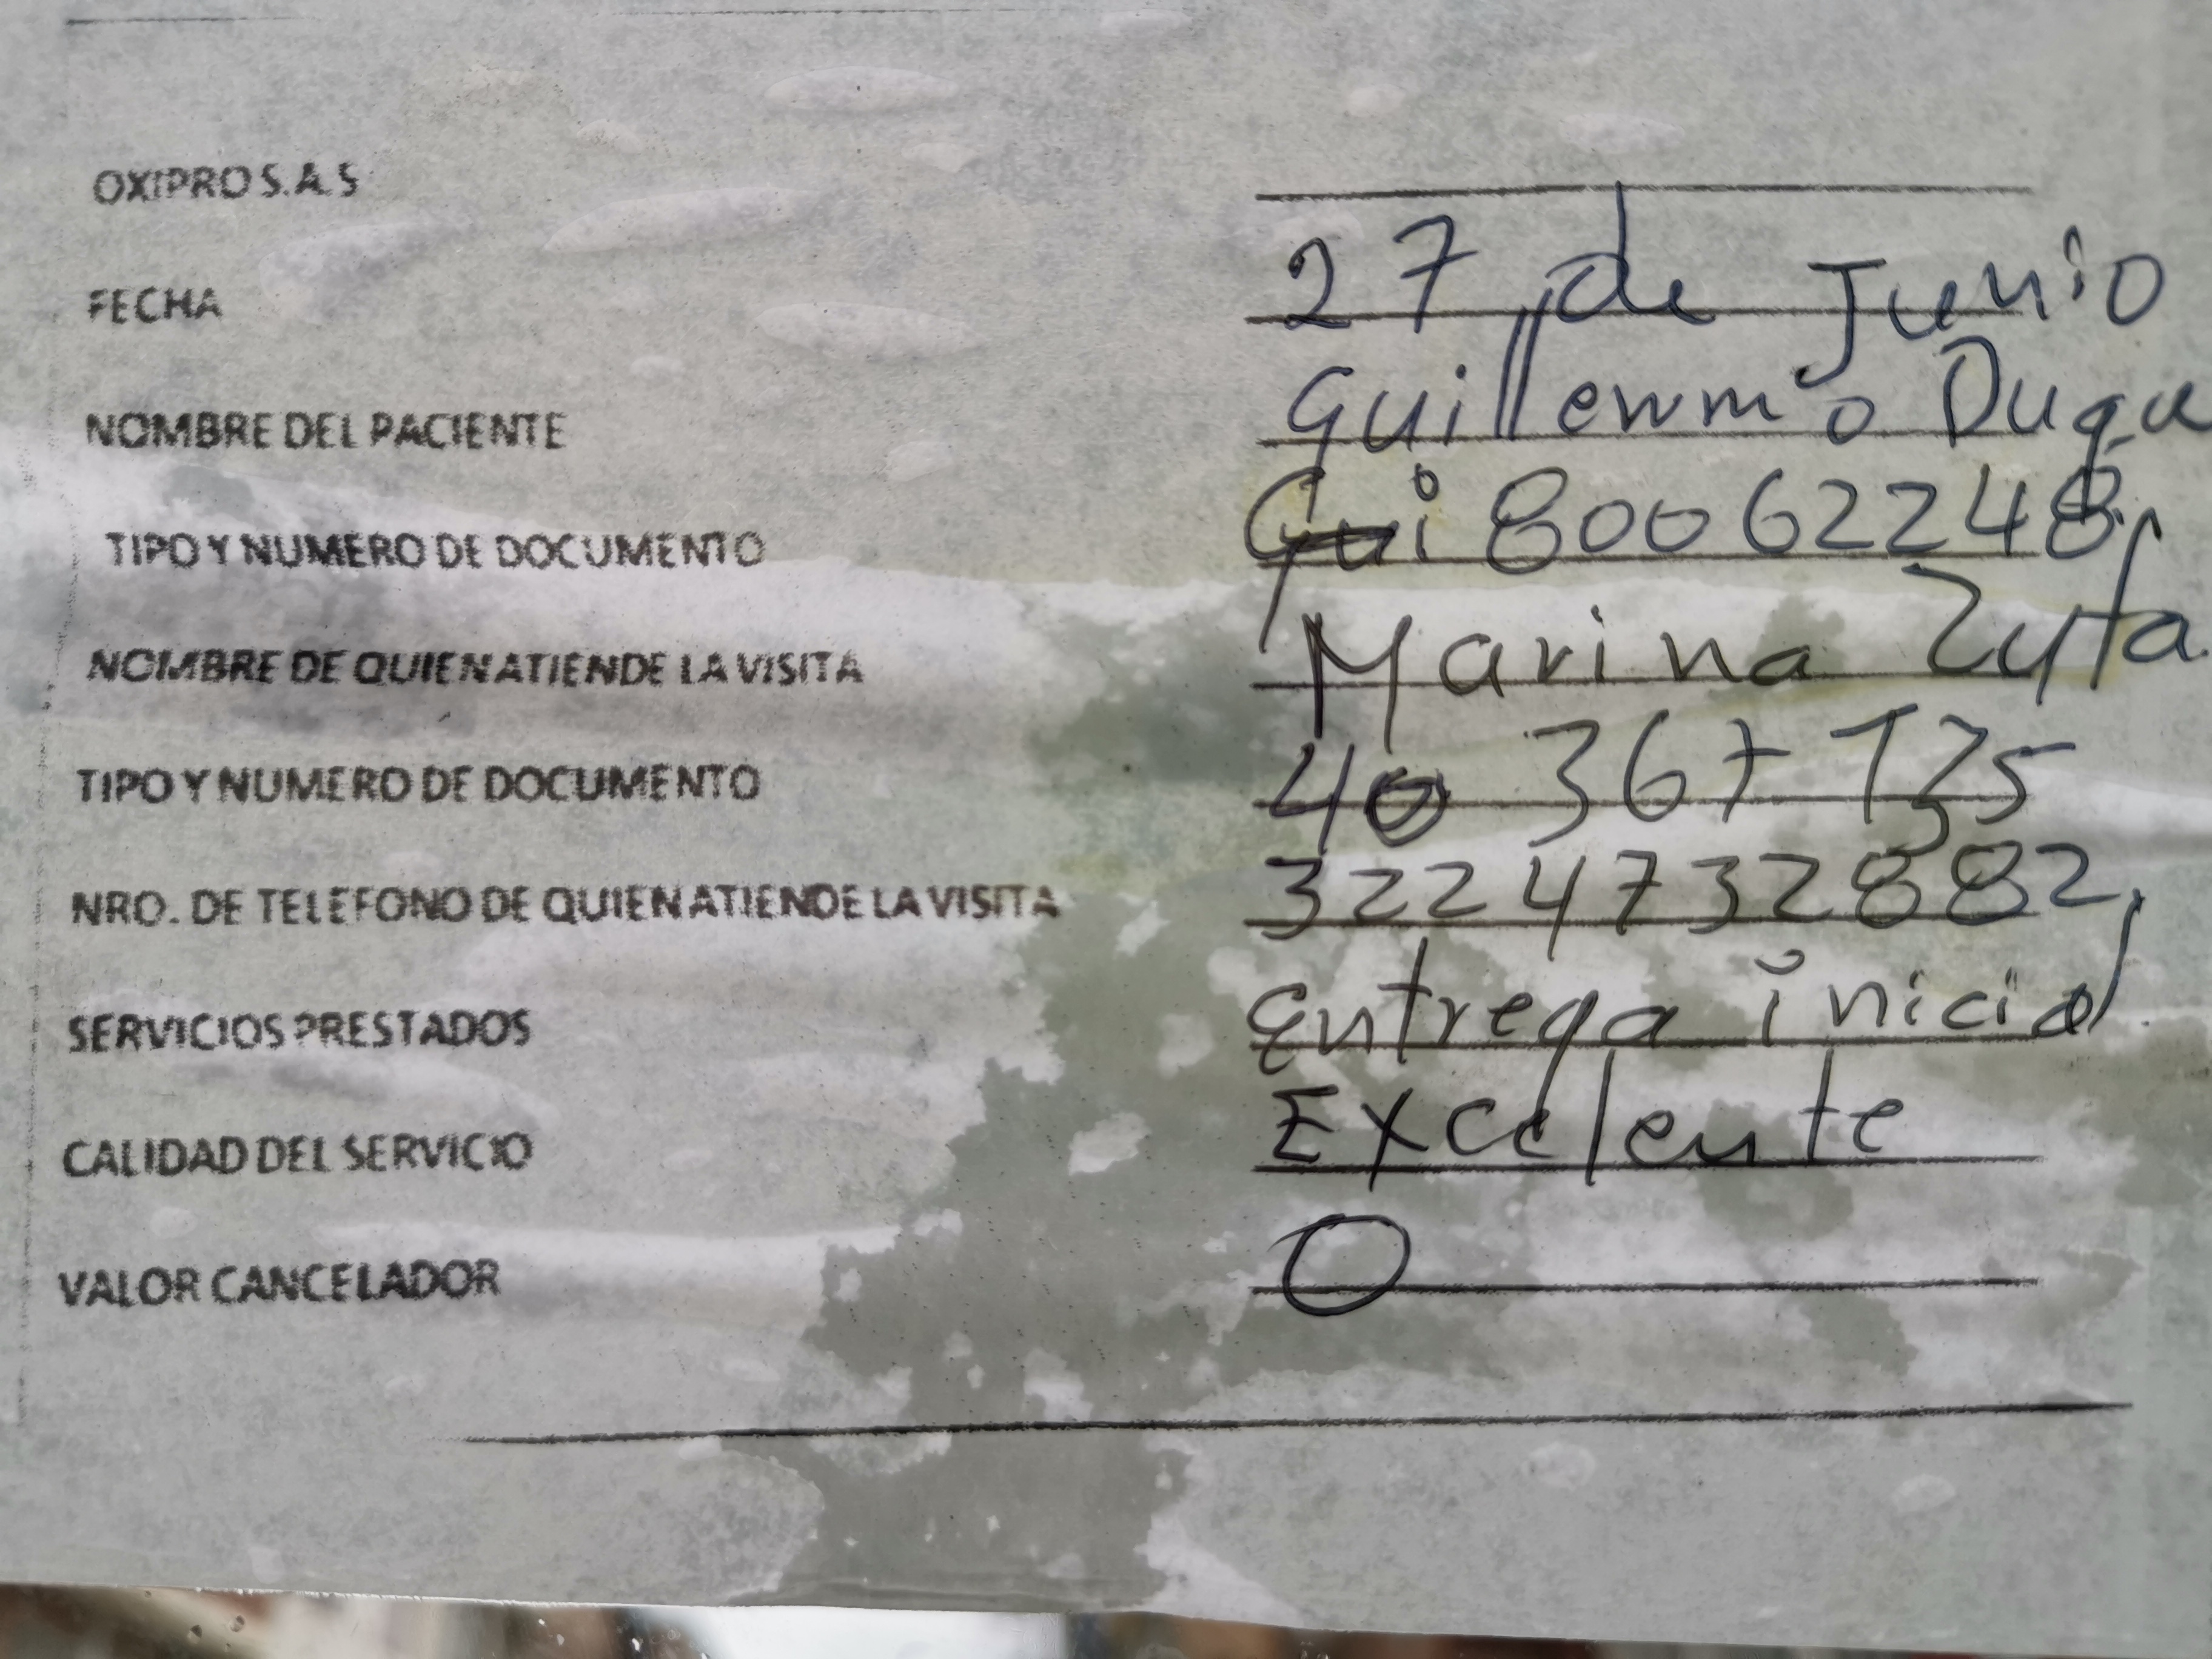 OXIPRO S.A.S
FECHA 27 de Junio
NOMBRE DEL PACIENTE Guillermo Duque
TIPO Y NUMERO DE DOCUMENTO 80062248
NOMBRE DE QUIEN ATIENDE LA VISITA Marina
TIPO Y NUMERO DE DOCUMENTO 40 367 125
NRO. DE TELEFONO DE QUIEN ATIENDE LA VISITA 3224732882
SERVICIOS PRESTADOS Entrega inicial
CALIDAD DEL SERVICIO Excelente
VALOR CANCELADOR 0